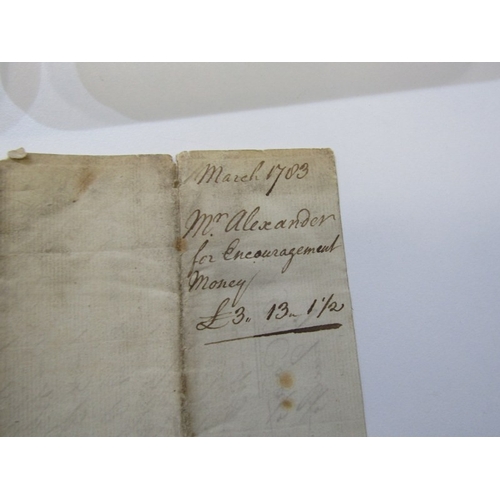 March 1783
Mr. Alexander
for Encouragement
Money
£3„ 13„ 1 1/2